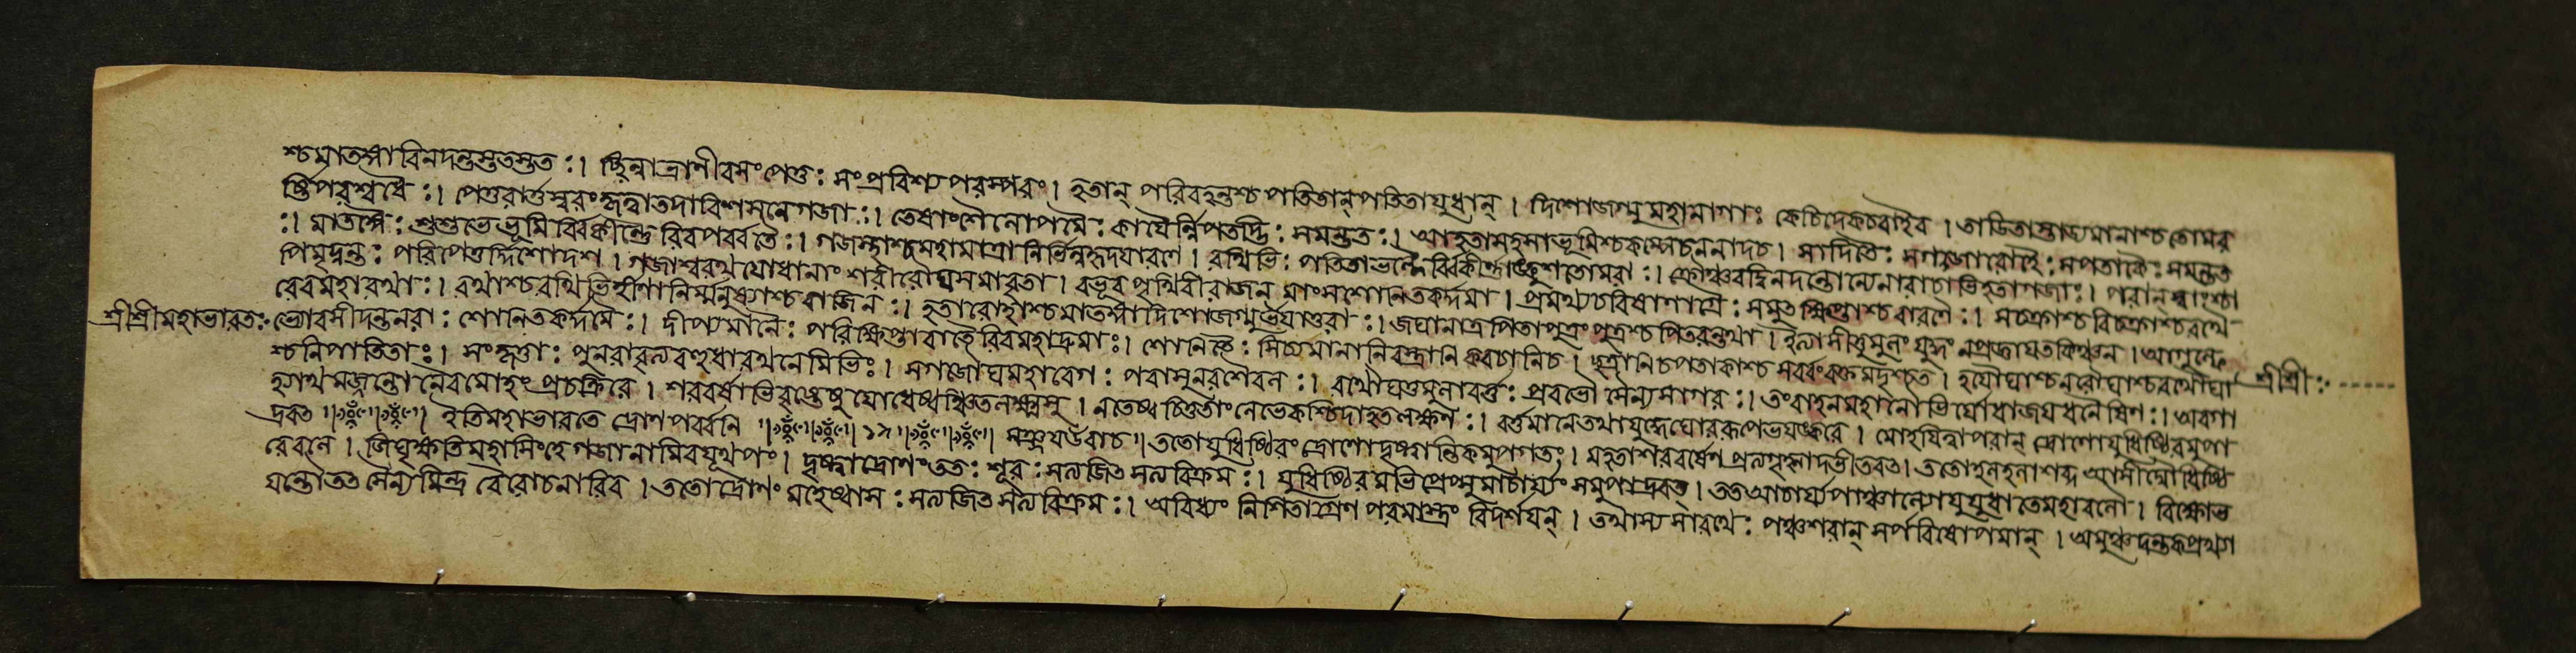 শ্চমাতঙ্গাবিনদন্তস্ততস্তত : । চ্ছিন্নাভ্রাণীবসংপেতু : সংপ্রবিশ্য পরস্পরং । হতান্ পরিবহন্তশ্চ পাতিতান্ পতিতাযুধান্ । দিশোজগ্মুর্মহানাগাঃ কেচিদেকচরাইব । তাডিতাস্তাড্যমানাশ্চ তোমর
র্ষ্টিপরশ্বধৈ : । পেতুরার্ত্তস্বরংকৃত্বাতদাবিশসনেগজা : । তেষাংশৈলোপমৈ : কাযৈর্ন্নিপতদ্ভি : সমন্তত : । আহতাসহসাভূমিশ্চকম্পেচননাদচ । সাদিতৈ : সগজারোহৈ : সপতাকৈ : সমন্তত
: । মাতঙ্গৈ : শুশুভে ভূমির্বিকীর্ণৈরিবপর্ব্বতৈ : । গজস্থাশ্চমহামাত্রা নির্ভিন্নহৃদযারণে । রথিভি : পাতিতাভল্লৈর্বিকীর্ণাঙ্কুশতোমরা : । ক্রৌঞ্চবদ্বিনদন্তোন্যেনারাচাভিহতাগজাঃ । পরান্ স্বাংশ্চা
পিমৃদ্নন্ত : পরিপেতুর্দ্দিশোদশ । গজাশ্বরথ যোধানাং শরীরৌঘসমাবৃতা । বভূব পৃথিবীরাজন্ মাংসশোনিতকর্দ্দমা । প্রমথ্যচবিষাণাগ্রৈ : সমুৎক্ষিপ্তাশ্চবারণৈ : । সচক্রাশ্চ বিচক্রাশ্চরথৈ
রেবমহারথা : । রথাশ্চরথিভির্হীণানির্ম্মনুষ্যাশ্চ বাজিন : । হতারোহাশ্চমাতঙ্গাদিশোজগ্মুর্ভযাতুরা : । জঘানাত্র পিতাপুত্রং পুত্রশ্চ পিতরন্তথা । ইত্যাসীত্তুমুলং যুদ্ধং নপ্রজ্ঞাযতকিঞ্চন । আগুল্ফে
শ্রীশ্রীমহাভারতঃ ভ্যোবসীদন্তনরা : শোনিতকর্দ্দমৈ : । দীপ্যমানৈ : পরিক্ষিপ্তাদাবৈরিবমহাদ্রুমাঃ । শোনিতৈ : সিচ্যমানানিবস্ত্রানি কবচানিচ । ছত্রানিচপতাকাশ্চ সর্ব্বংরক্তমদৃশ্যত । হযৌঘাশ্চনরৌঘাশ্চরথৌঘা শ্রীশ্রীঃ
শ্চনিপাতিতাঃ । সংক্ষুণ্ণা : পুনরাবৃত্যবহুধারথনেমিভিঃ । সগজৌঘমহাবেগ : পরাসুনরশৈবল : । রথৌঘতুমুলাবর্ত্ত : প্রবভৌ সৈন্যসাগর : । তংবাহনমহানৌভির্যোধাজযধনৈষিণ : । অবগা
হ্যাথমজ্জন্তোনৈবমোহং প্রচক্রিরে । শরবর্ষাভিবৃষ্টেষু যোধেষ্বঞ্চিতলক্ষ্মসু । নতেষ্ব চিত্ততাংলেভেকশ্চিদাহতলক্ষণ : । বর্ত্তমানেতথাযুদ্ধেঘোররূপেভযঙ্করে । মোহযিত্বাপরান্ দ্রোণোযুধিষ্ঠিরমুপা
দ্রবৎ ॥ ॥ ॥ ইতিমহাভারতে দ্রোণপর্ব্বনি ॥ ॥ ॥ ১৯ ॥ ॥ ॥ সঞ্জযউবাচ ॥ ততোযুধিষ্ঠিরং দ্রোণোদৃষ্ট্বান্তিকমুপাগতং । মহতাশরবর্ষেণ প্রত্যগৃহ্ণাদভীতবৎ । ততোহলহলাশব্দ আসীদ্যৌধিষ্ঠি
রেবলে । জিঘৃক্ষতিমহাসিংহে গজানামিবযূথপং । দৃষ্ট্বাদ্রোণংতত : শূর : সত্যজিৎ সত্যবিক্রম : । যুধিষ্ঠিরমভিপ্রেপ্সুমাচার্য্যং সমুপাদ্রবৎ । ততআচার্য্যপাঞ্চাল্যোযুযুধাতেমহাবলৌ । বিক্ষোভ
যন্তৌতৎসৈন্যমিন্দ্র বৈরোচনাবিব । ততোদ্রোণং মহেষ্বাস : সত্যজিৎ সত্যবিক্রম : । অবিধ্যং নিশিতাগ্রেণ পরমাস্ত্রং বিদর্শযন্ । তথাস্য সারথে : পঞ্চশরান্ সর্পবিষোপমান্ । অমুঞ্চদন্তকপ্রখ্যা